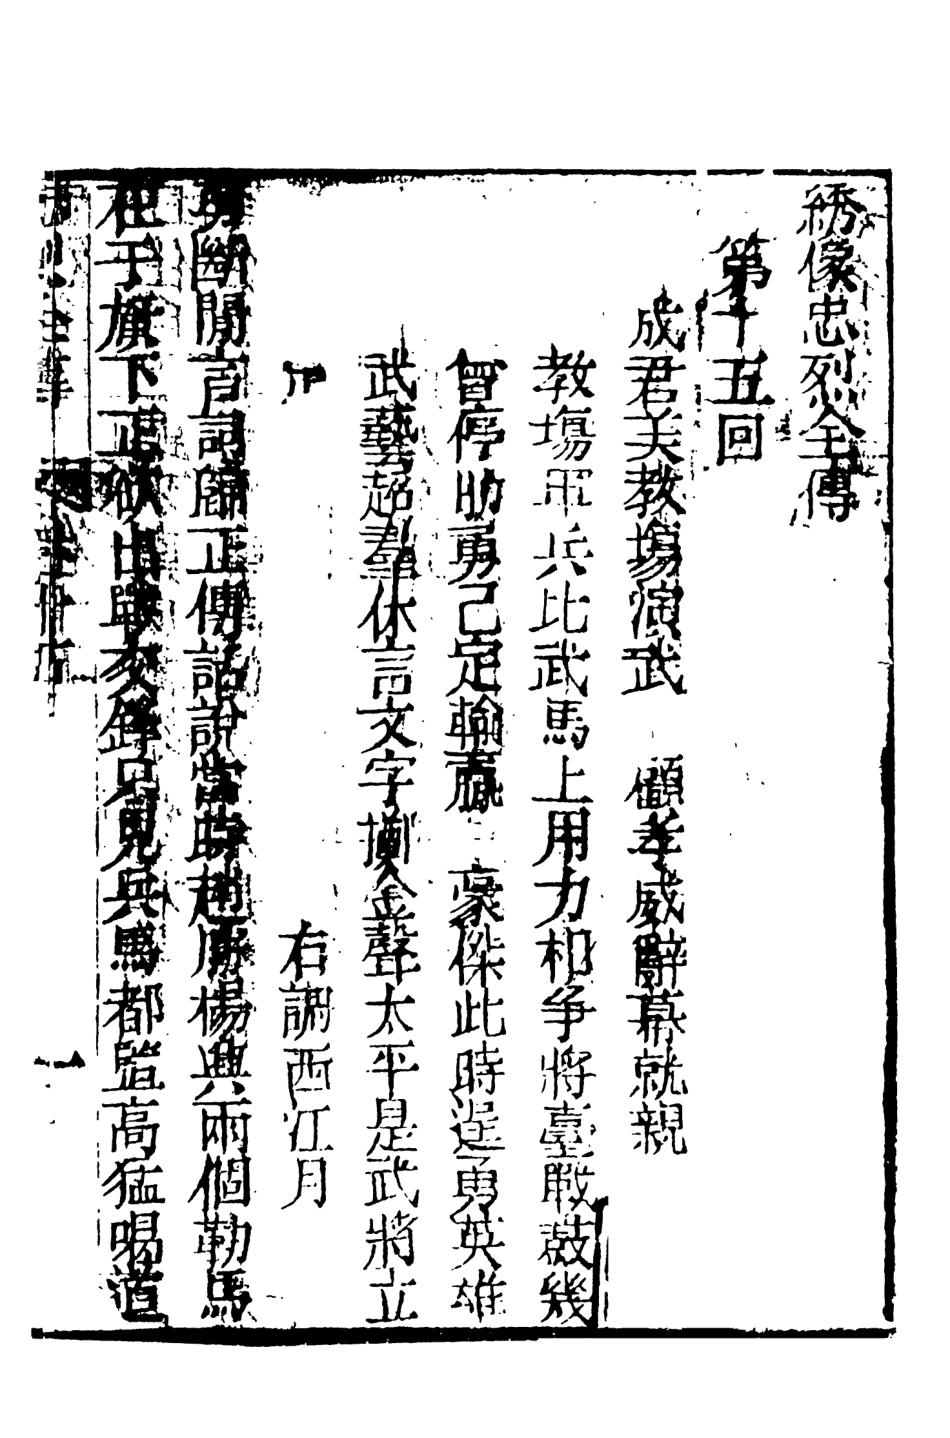 綉像忠烈全傳
第十五回
成君美教塲演武 顧孝威辭幕就親
教塲軍兵比武馬上用力相争將臺戰皷幾
曾停助勇己定輸贏 豪傑此時逞勇英雄
武藝超羣休言文字擲金聲太平是武將立
功 右調西江月
剪斷閒言詞歸正傳話說當時趙勝楊興兩個勒馬
在于旗下正欲出戰交鋒只見兵馬都監高猛喝道